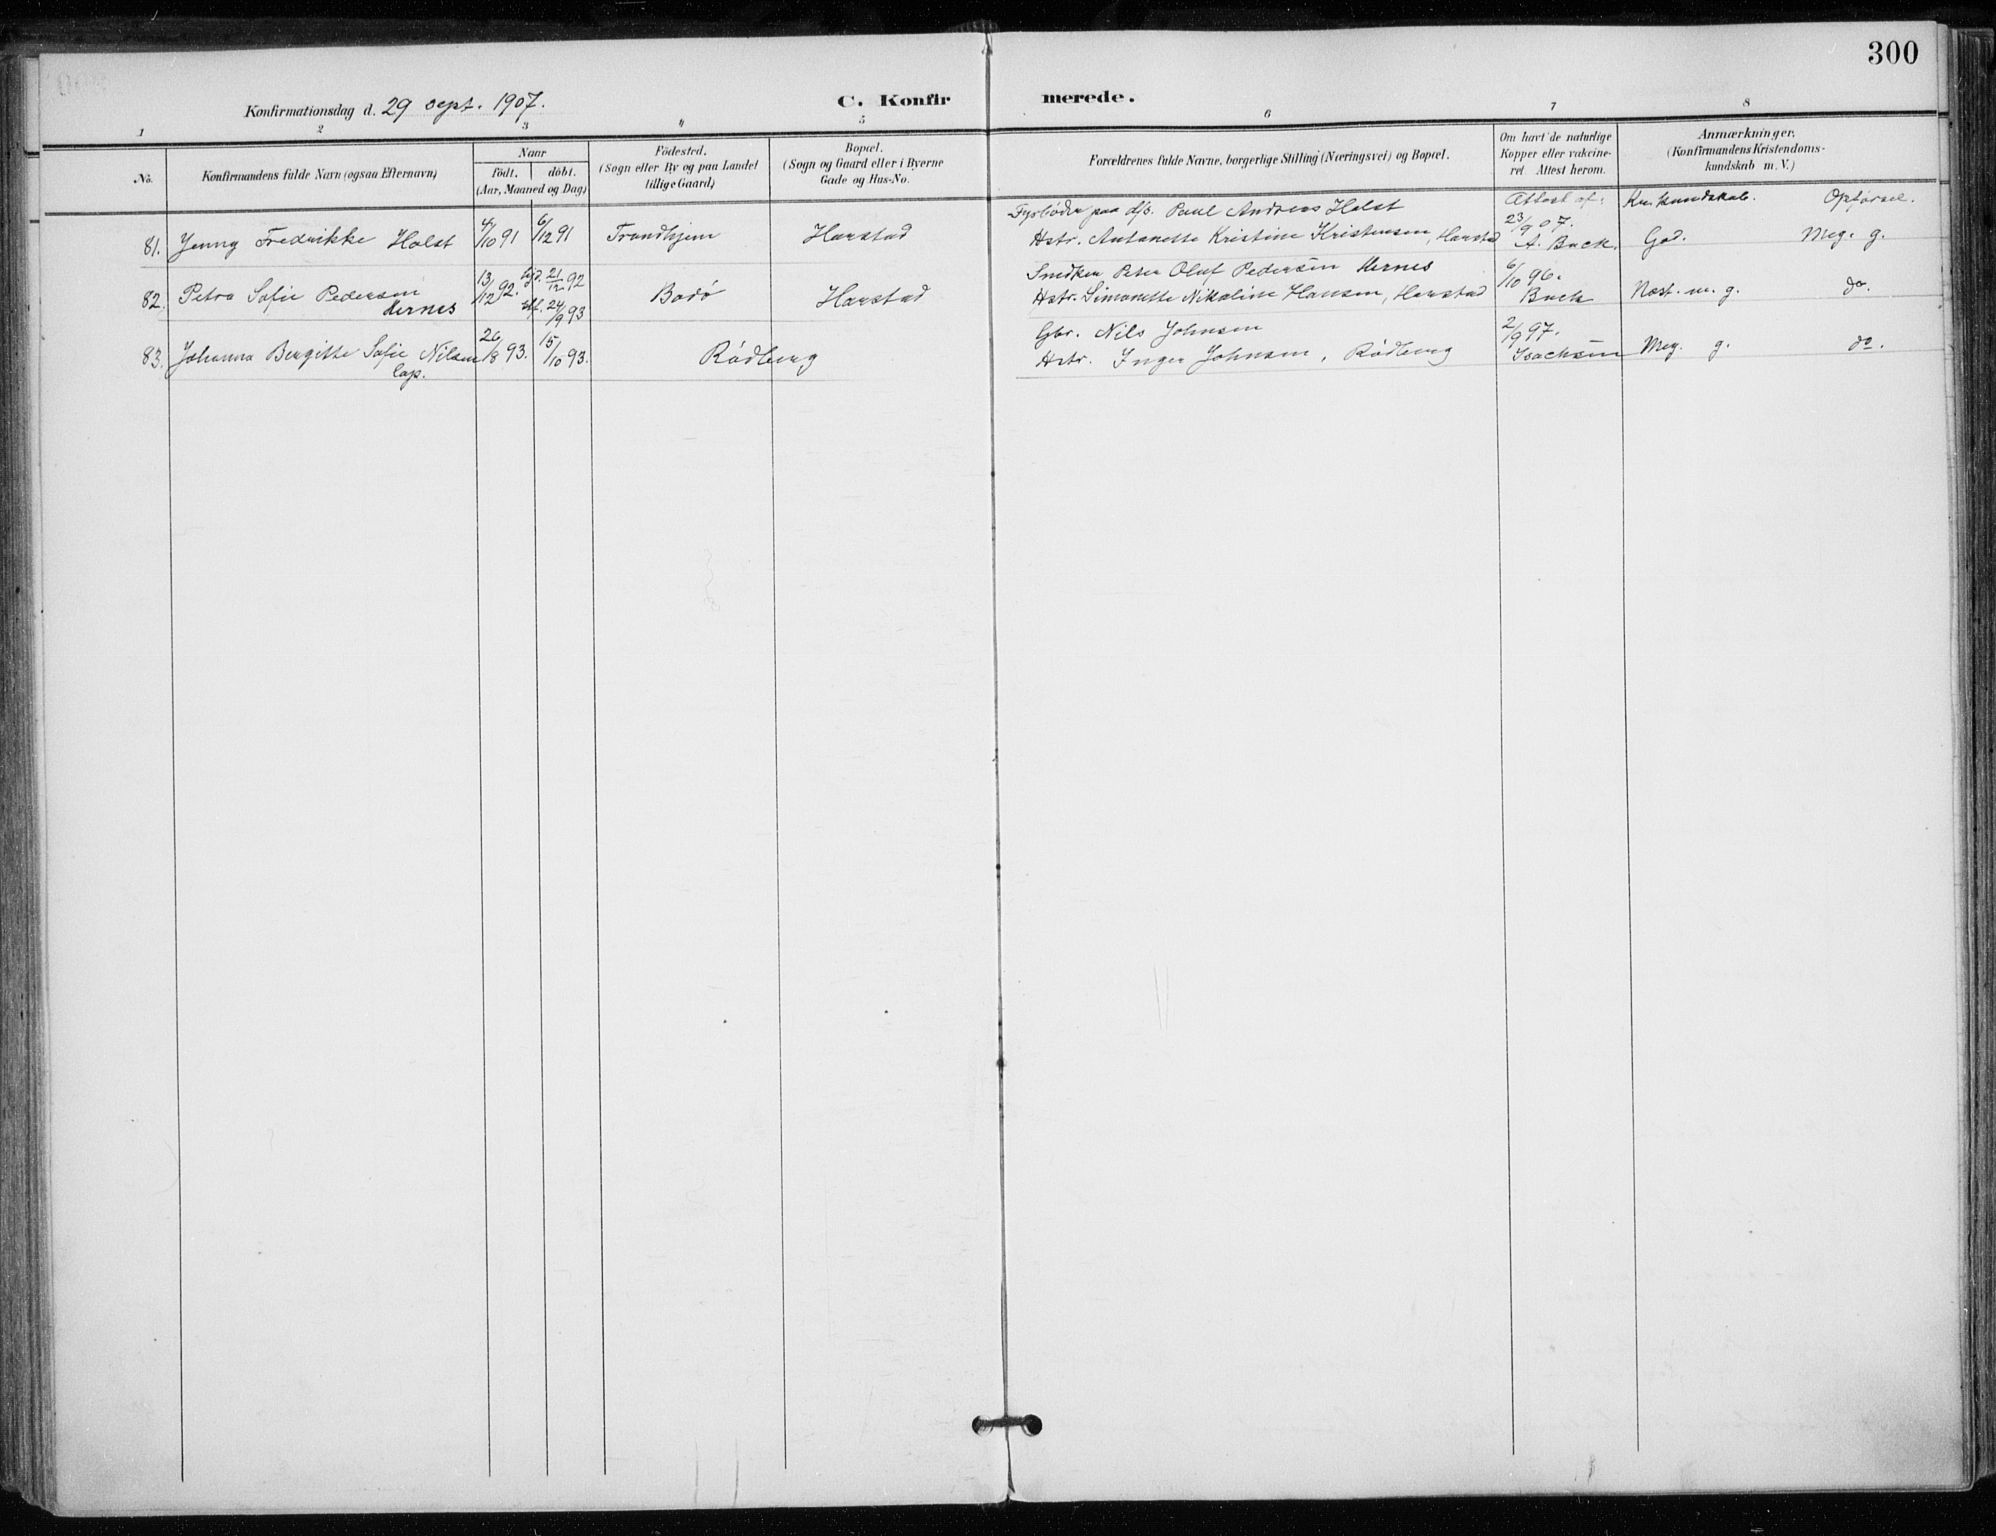 300
Konfirmationsdag d. 29 sept. 1907.
C. Konfir
merede.
1 2 3 4 5 6 7 8
No.
Konfirmandens fulde Navn (ogsaa Efternavn)
Naar
födt. döbt.
(Aar, Maaned og Dag)
Födested.
(Sogn eller By og paa Landet
tillige Gaard)
Bopæl.
(Sogn og Gaard eller i Byerne
Gade og Hus-No.
Forældrenes fulde Navne, borgerlige Stilling (Næringsvei) og Bopæl.
Om havt de naturlige
Kopper eller vakcine-
ret Attest herom.
Anmærkninger.
(Konfirmandens Kristendoms-
kundskab m. V.)
Attest af: Kr. kundskab. Opførsel.
Fyrbøder paa d/s. Paul Andreas Holst
81. Jenny Fredrikke Holst 4/10 91 6/12 91 Trondhjem Harstad Hstr. Antonette Kristine Kristensen, Harstad 23/9 07. A. Buck. God. Meg. g.
Smedken Peter Oluf Pedersen Hernes
82. Petra Sofie Pedersen Hernes 13/12 92. hjd. 21/12 92 stf. 24/9 93 Bodø Harstad Hstr. Simonette Nikoline Hansen, Harstad 6/10 96. Buck Næst. m. g. do.
Gbr. Nils Johnsen
83. Johanna Bergitte Sofie Nilsen 26/8 93. 15/10 93. Rödberg Hstr. Inger Johnsen, Rödberg 2/9 97. Isachsen Meg. g. do.
lap.